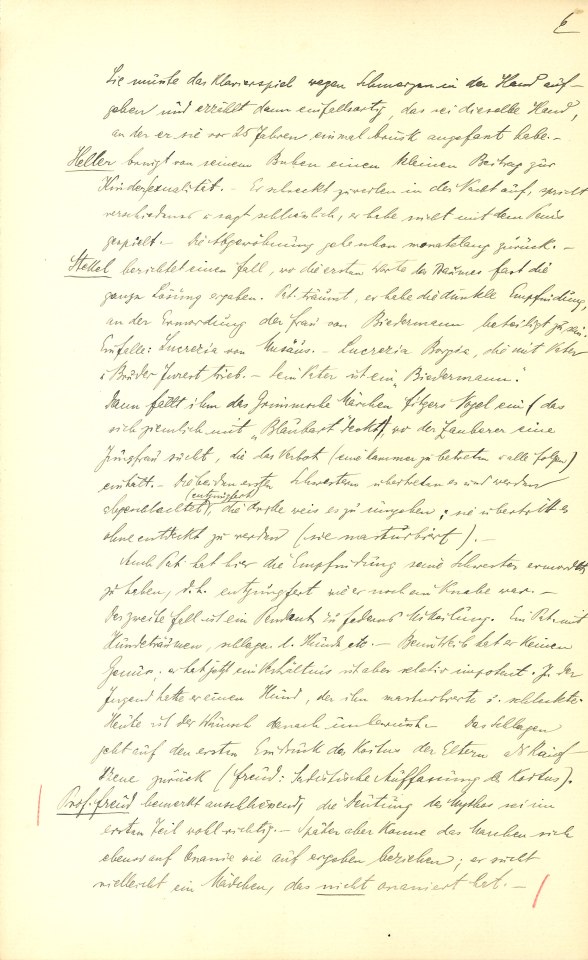 6
Sie müsste das Klavierspiel wegen Schmerzen in der Hand auf-
geben und erzählt dann einfallsartig, das sei dieselbe Hand,
an der er sie vor 25 Jahren einmal brüsk angefasst habe.-
Heller bringt von seinem Buben einen kleinen Beitrag zur
Kindersexualität.- Er schreckt zuweilen in der Nacht auf, spricht
verschiedenes u sagt schliesslich, er habe nicht mit dem Penis
gespielt.- Die Abgewöhnung gehe schon monatelang zurück.-
Stekel berichtet einen Fall, wo die ersten Worte des Traumes fast die
ganze Lösung ergaben. Pat. träumt, er habe die dunkle Empfindung,
an der Ermordung der Frau von Biedermann beteiligt zu sein.
Einfälle: Lucrezia von Musäus.- Lucrezia Borgia, die mit Vater
u Bruder Inzest trieb.- Sein Vater ist ein "Biedermann".
Dann fällt ihm das Grimmsche Märchen Fitchers Vogel ein (das
sich ziemlich mit "Blaubart" deckt), wo der Zauberer eine
Jungfrau sucht, die das Verbot (eine Kammer zu betreten u alle folgen)
einhält.- Die beiden ersten Schwestern übertreten es und werden
abgeschlachtet (entjungfert), die dritte weiss es zu umgehen; sie übertritt es
ohne entdeckt zu werden (sie masturbiert).-
Auch Pat. hat hier die Empfindung seine Schwester ermordet
zu haben, d.h. entjungfert wie er noch ein Knabe war.-
Der zweite Fall ist ein Pendant zu Federns Mitteilung. Ein Pat. mit
Hundeträumen, schlagen d. Hunde etc.- Beim Weib hat er keinen
Genuss; er hat jetzt ein Verhältnis ist aber relativ impotent. In der
Jugend hatte er einen Hund, der ihn masturbierte u. schleckte.
Heute ist der Wunsch danach unbewusst. Das Schlagen
geht auf den ersten Eindruck des Koitus der Eltern als Rauf-
szene zurück (Freud: Sadistische Auffassung des Koitus).
Prof. Freud bemerkt anschliessend, die Deutung des Mythos sei im
ersten Teil wohl richtig.- Später aber könne das Märchen sich
ebenso auf Onanie wie auf beziehen; er sucht
vielleicht ein Mädchen, das nicht onaniert hat.-